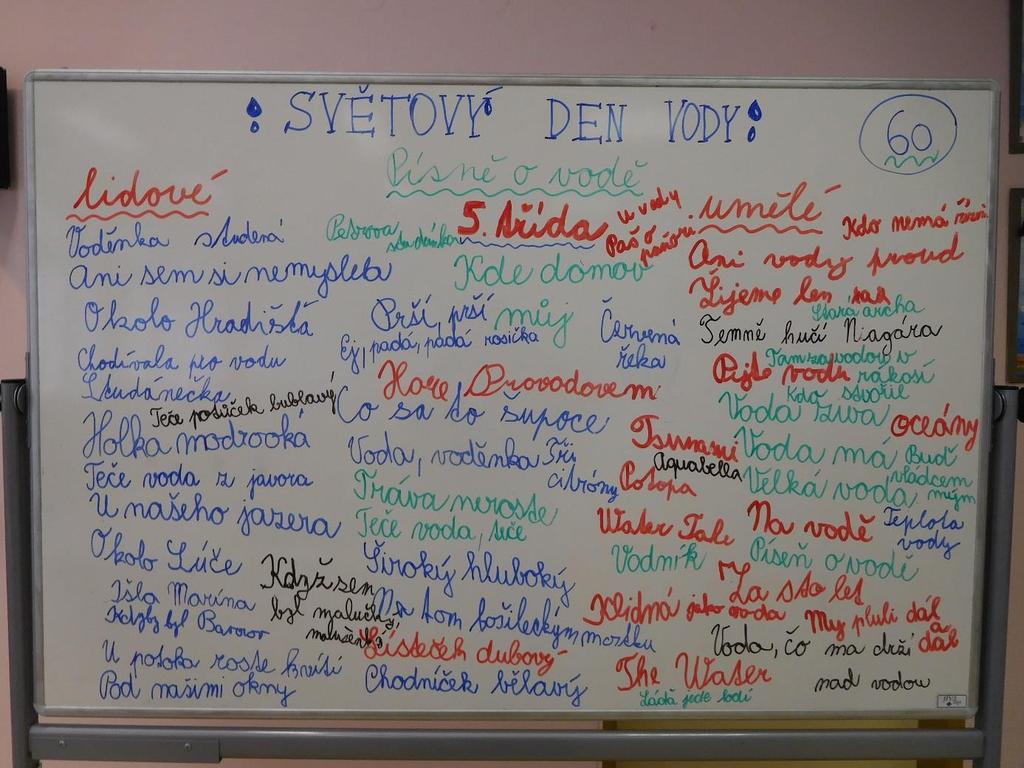 SVĚTOVÝ DEN VODY
60
Písně o vodě
lidové
5. třída
umělé
Voděnka studená
Ani sem si nemyslela
Okolo Hradišťa
Chodívala pro vodu
Studánečka
Teče potůček bublavý
Holka modrooká
Teče voda z javora
U našeho jazera
Okolo Súče
Když sem
byl malučký
Išla Marína
Kdyby byl Bavor
U potoka roste kvítí
Pod našimi okny
Petrova
studánka
Kde domov
můj
Prší, prší
Ej, padá, padá rosička
Červená
řeka
Hore Provodovem
Co sa to šupoce
Voda, voděnka
Tři
citróny
Tráva neroste
Teče voda, teče
Široký hluboký
Na tom bošileckým mostku
Lísteček dubový
Chodníček bělavý
U vody
Kdo nemá
Ani vody proud
Žijeme len raz
Stará archa
Temně hučí Niagára
Pijte vodu
Tam za vodou v
rákosí
Kdo stvořil
oceány
Voda živá
Tsunami
Aquabella
Voda má
Buď
vládcem
mým
Potopa
Velká voda
Water Tale
Na vodě
Teplota
vody
Vodník
Píseň o vodě
Za sto let
Klidná jako voda
My pluli dál
a
dál
Voda, čo ma drží
nad vodou
The Water
Láďa jede lodí